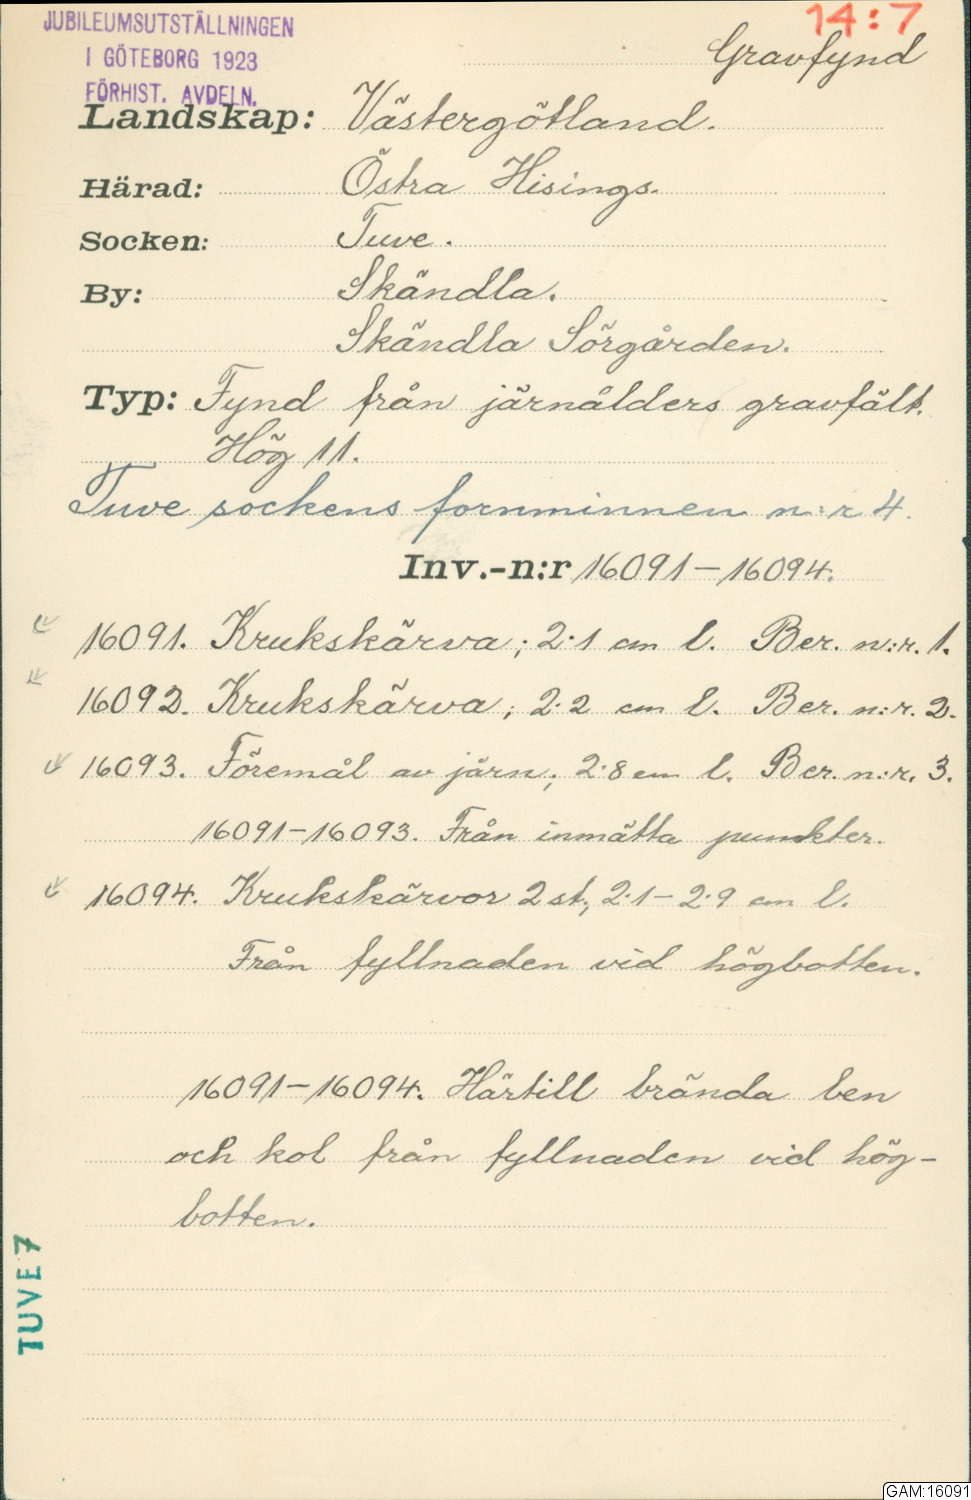 JUBILEUMSUTSTÄLLNINGEN
I GÖTEBORG 1923
FÖRHIST. AVDELN.
14:7
Gravfynd
Landskap: Västergötland.
Härad: Östra Hisings.
Socken: Tuve.
By: Skändla.
Skändla Sörgården.
Typ: Fynd från järnålders gravfält.
Hög 11.
Tuve sockens fornminnen n:r 4.
Inv.-n:r 16091-16094.
16091. Krukskärva; 2·1 cm l. Ber. n:r. 1.
16092. Krukskärva; 2·2 cm l. Ber. n:r. 2.
16093. Föremål av järn; 2·8 cm l. Ber. n:r. 3.
16091-16093. Från inmätta punkter.
16094. Krukskärvor 2 st; 2·1-2·9 cm l.
Från fyllnaden vid högbotten.
16091-16094. Härtill brända ben
och kol från fyllnaden vid hög-
botten.
TUVE 7
GAM:16091